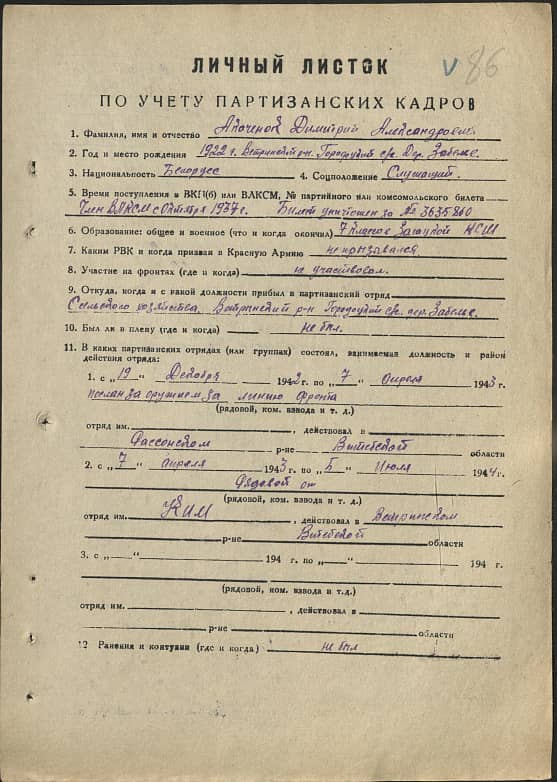 V 86
ЛИЧНЫЙ ЛИСТОК
ПО УЧЕТУ ПАРТИЗАНСКИХ КАДРОВ
1. Фамилия, имя и отчество Апаченок Димитрий Александрович.
2. Год и место рождения 1922 г. Ветринский р-н. Городецкий с/с. Дер. Заболье.
3. Национальность Белорус 4. Соцположение Служащий.
5. Время поступления в ВКП(б) или ВЛКСМ, № партийного или комсомольского билета
Член ВЛКСМ с Октября г. Билет уничтожен за № 3635860
6. Образование: общее и военное (что и когда окончил) 7 классов НСШ
7. Каким РВК и когда призван в Красную Армию не призывался
8. Участие на фронтах (где и когда) не участвовал.
9. Откуда, когда и с какой должности прибыл в партизанский отряд
Сельского хозяйства, Ветринский р-н Городецкий с/с. дер. Заболье.
10. Был ли в плену (где и когда) не был.
11. В каких партизанских отрядах (или группах) состоял, занимаемая должность и район
действия отряда:
1. с „19“ Декабря 1942 г. по „7“ апреля 1943 г.
послан за оружием за линию фронта
(рядовой, ком. взвода и т. д.)
отряд им. , действовал в
Россонском р-не Витебской области
2. с „7“ апреля 1943 г. по „5“ Июля 1944 г.
Рядовой от
(рядовой, ком. взвода и т. д.)
отряд им. КИМ , действовал в Ветринском
р-не Витебской области
3. с „ “ 194 г. по „ “ 194 г.
(рядовой, ком. взвода и т.д.)
отряд им. , действовал в
р-не области
12 Ранения и контузии (где и когда) не был